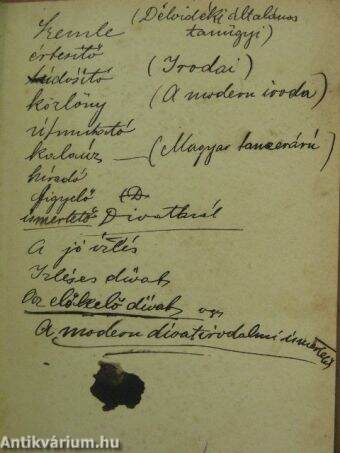 Szemle (Délvidéki általános
tanügyi)
értesítő
tudósító (Irodai)
közlöny (A modern iroda)
útmutató
kalauz — (Magyar tanszerárú)
híradó
figyelő (D
ismertető Divatknál
A jó ízlés
Izléses divat
Az előkelő divat vagy
A modern divatirodalmi ismertető
Antikvárium.hu